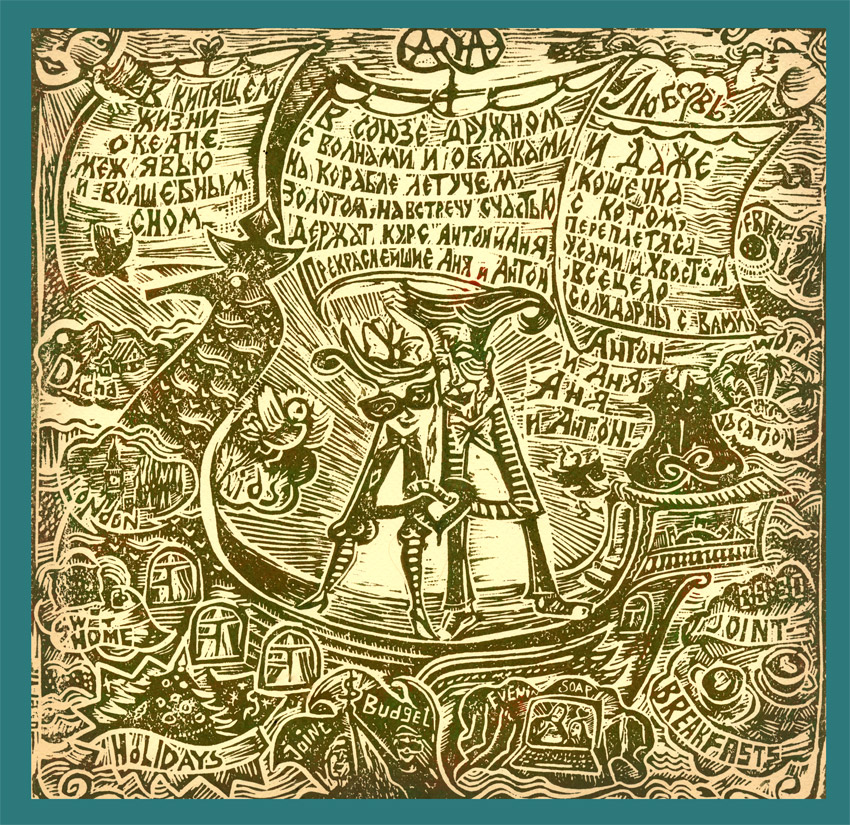 В КИПЯЩЕМ
ЖИЗНИ
ОКЕАНЕ
МЕЖ ЯВЬЮ
И ВОЛШЕБНЫМ
СНОМ,
В СОЮЗЕ ДРУЖНОМ
С ВОЛНАМИ И ОБЛАКАМИ,
НА КОРАБЛЕ ЛЕТУЧЕМ,
ЗОЛОТОМ, НАВСТРЕЧУ СЧАСТЬЮ
ДЕРЖАТ КУРС АНТОН И АНЯ
ПРЕКРАСНЕЙШИЕ АНЯ И АНТОН
ЛЮБОВЬ
И ДАЖЕ
КОШЕЧКА
С КОТОМ,
ПЕРЕПЛЕТЯСЬ
УСАМИ И ХВОСТОМ
ВСЕЦЕЛО
СОЛИДАРНЫ С ВАМИ,
АНТОН
И АНЯ,
АНЯ
И АНТОН!
FRIENDS
WORK
VACATION
Dacha
LONDON
Kids
HOME
JOINT
BREAKFASTS
HOLIDAYS
JOINT BUDGET
SOAP